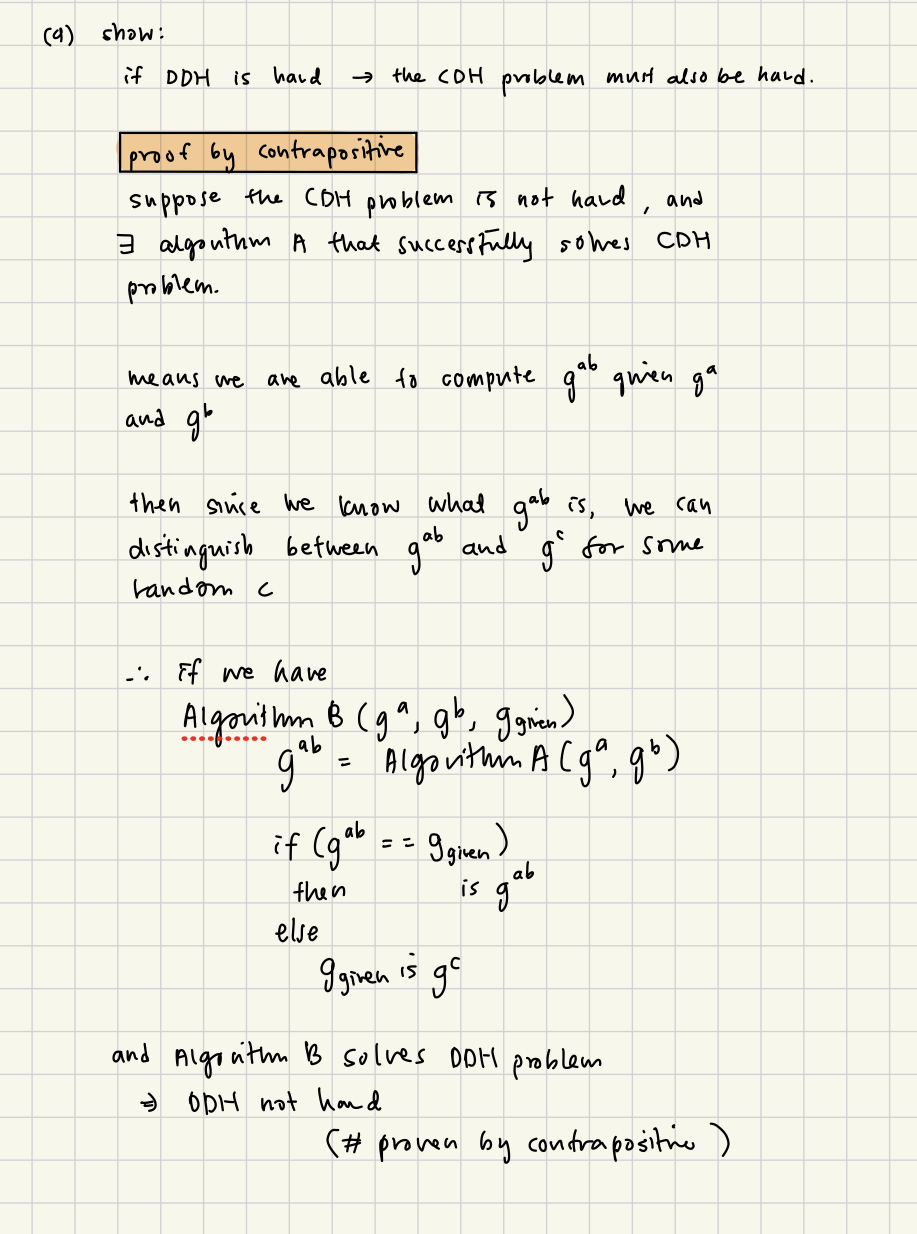 (a) show:
if DDH is hard → the CDH problem must also be hard.
proof by contrapositive
suppose the CDH problem is not hard, and
∃ algorithm A that successfully solves CDH
problem.
means we are able to compute g^ab given g^a
and g^b
then since we know what g^ab is, we can
distinguish between g^ab and g^c for some
random c
∴ if we have
Algorithm B (g^a, g^b, g_given)
g^ab = Algorithm A (g^a, g^b)
if (g^ab == g_given)
then is g^ab
else
g_given is g^c
and Algorithm B solves DDH problem
⇒ DDH not hard
(# proven by contrapositive)